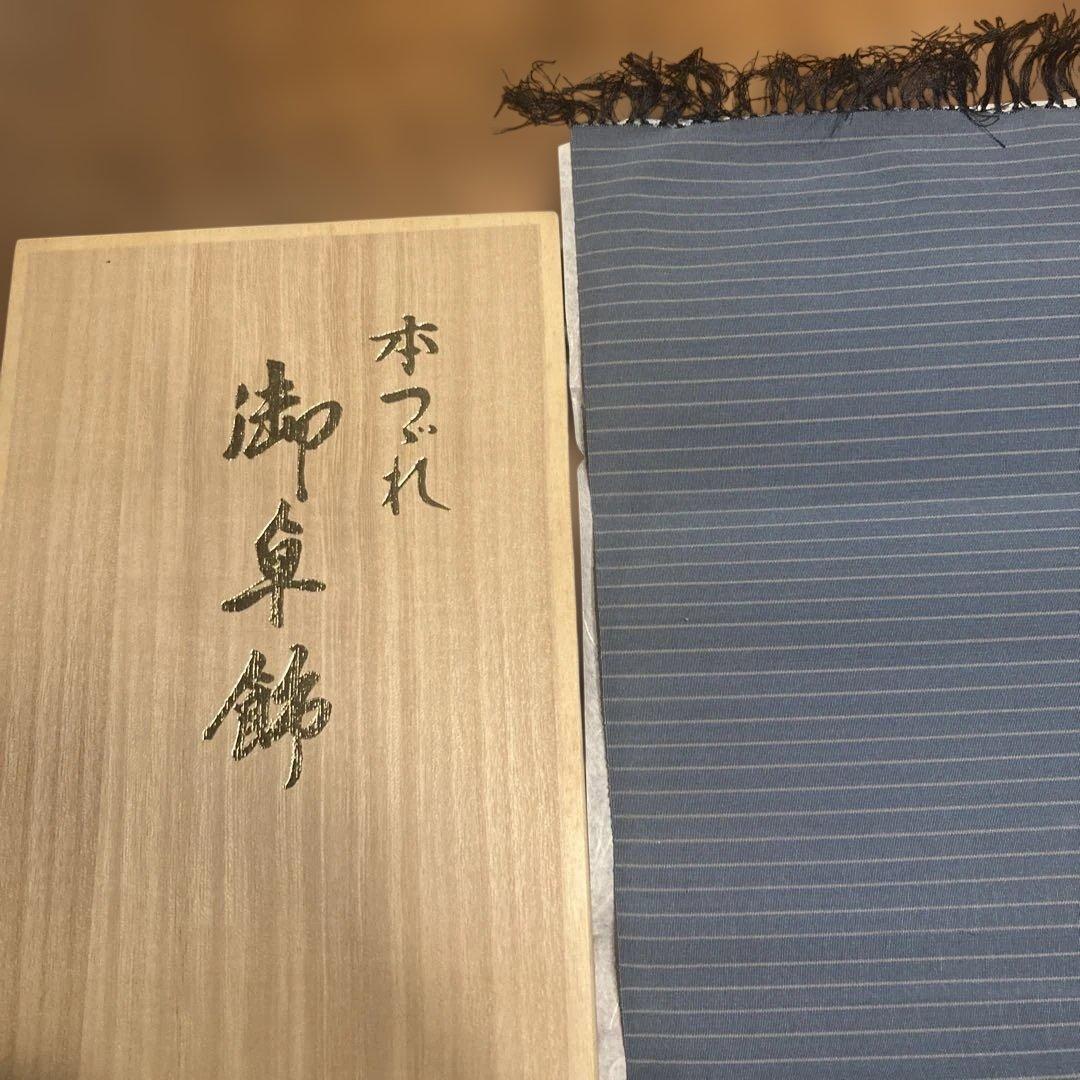 本つづれ
御卓飾